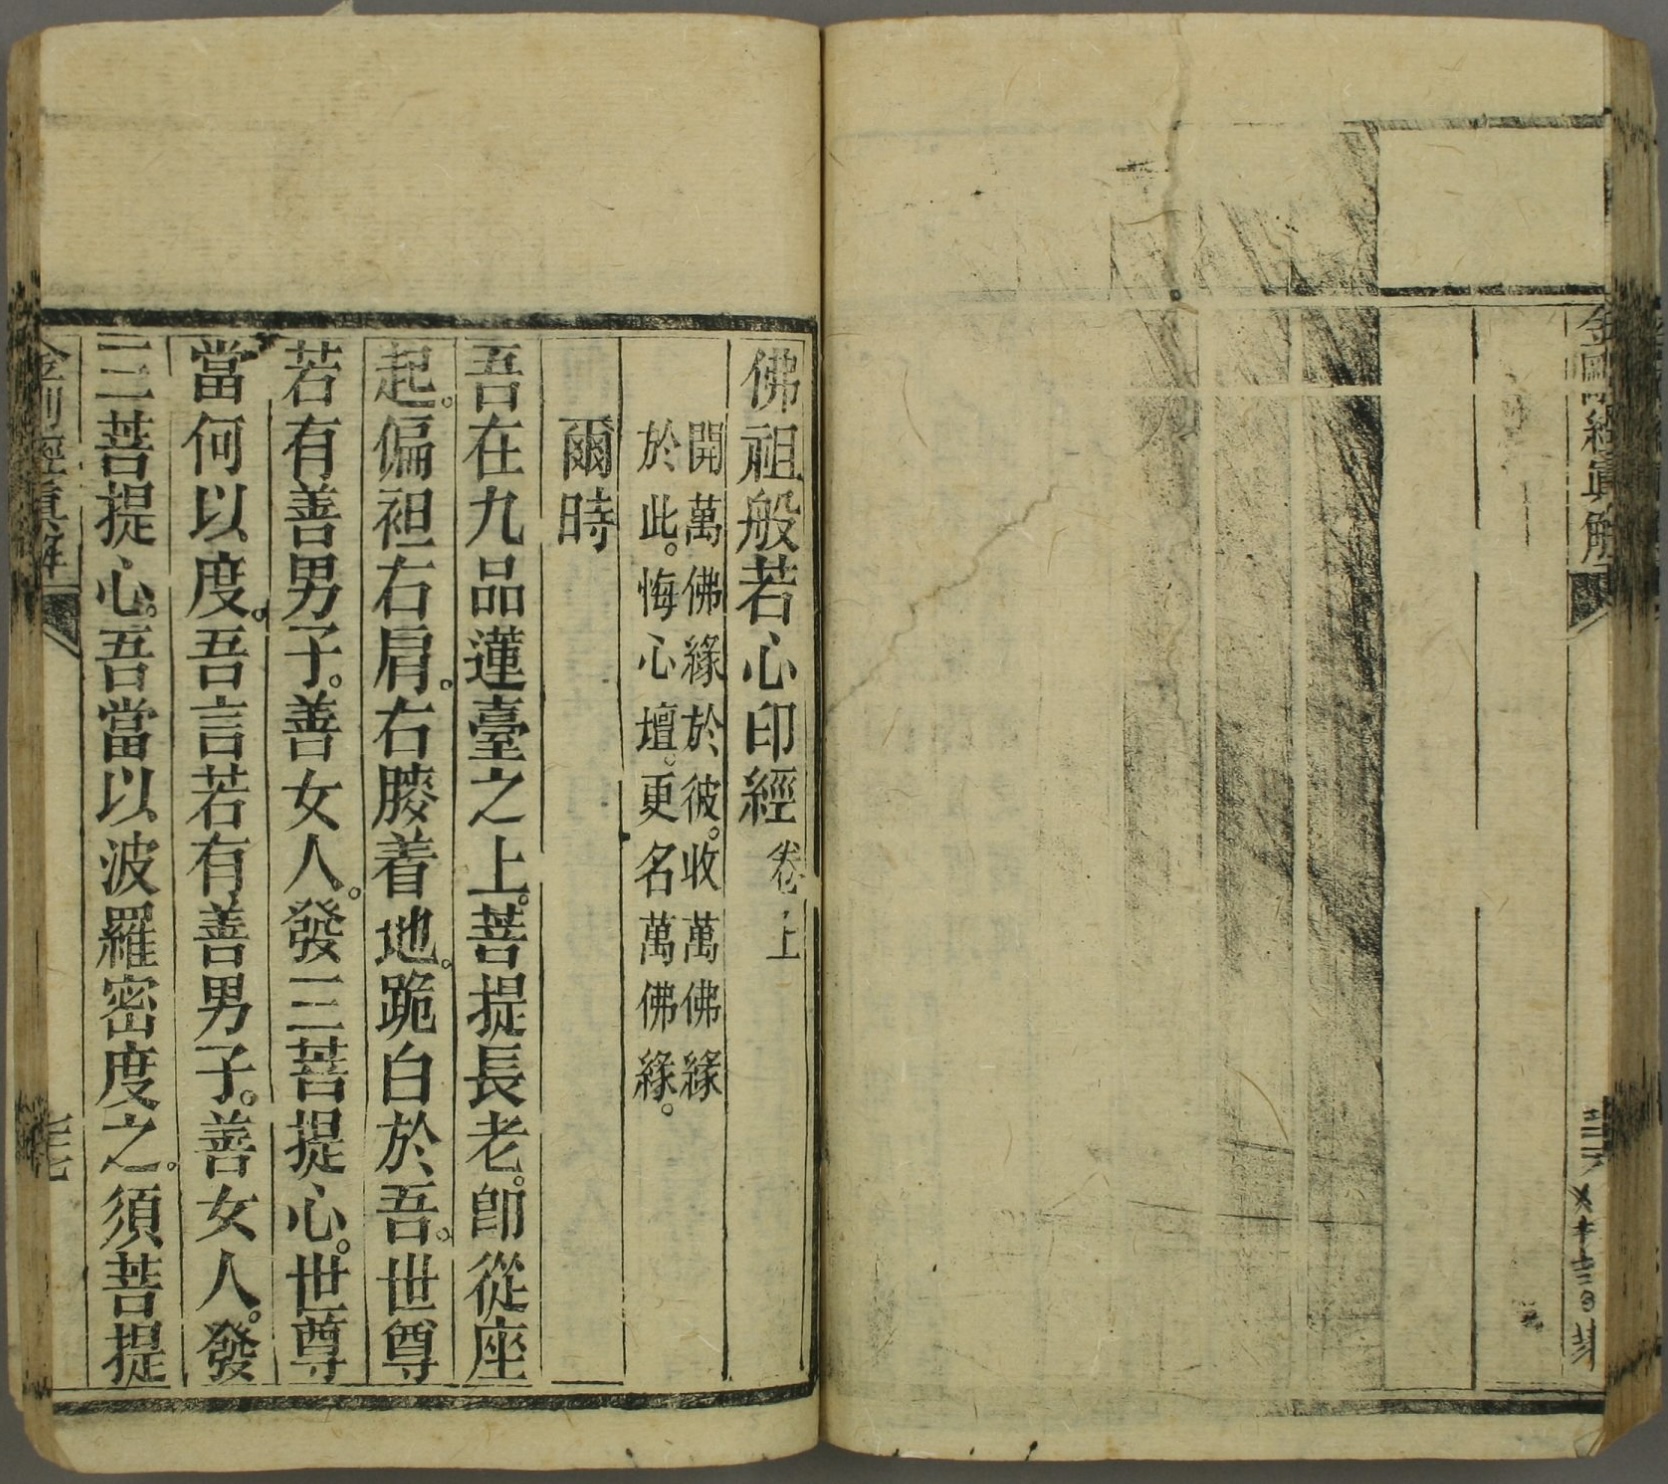 金剛經眞解
佛祖般若心印經 卷上
開萬佛緣於彼。收萬佛緣
於此。悔心壇。更名萬佛緣。
爾時
吾在九品蓮臺之上。菩提長老。卽從座
起。偏袒右肩。右膝着地。跪白於吾。世尊
若有善男子。善女人。發三菩提心。世尊
當何以度。吾言若有善男子。善女人。發
三菩提心。吾當以波羅密度之。須菩提
金剛經眞解